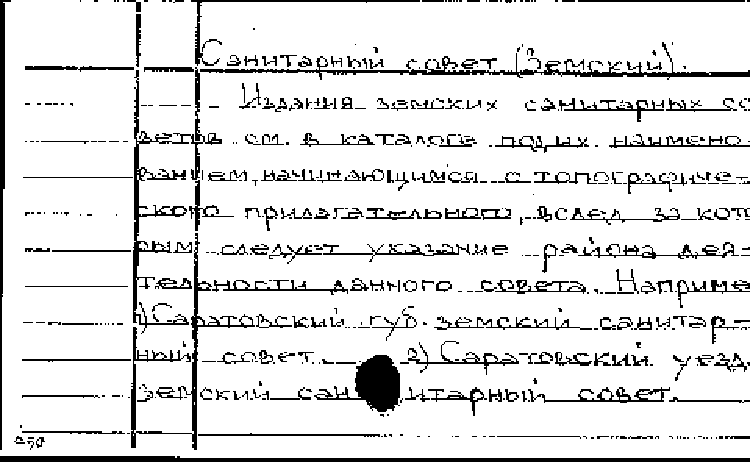 Санитарный совет (Земский).
Издания земских санитарных со
ветов см. в каталоге под их наимено-
ванием, начинающимся с топографиче-
ского прилагательного, вслед за кот
рым следует указание района дея-
тельности данного совета. Наприме
1) Саратовский губ. земский санитар-
ный совет. 2) Саратовский уезд.
земский санитарный совет.